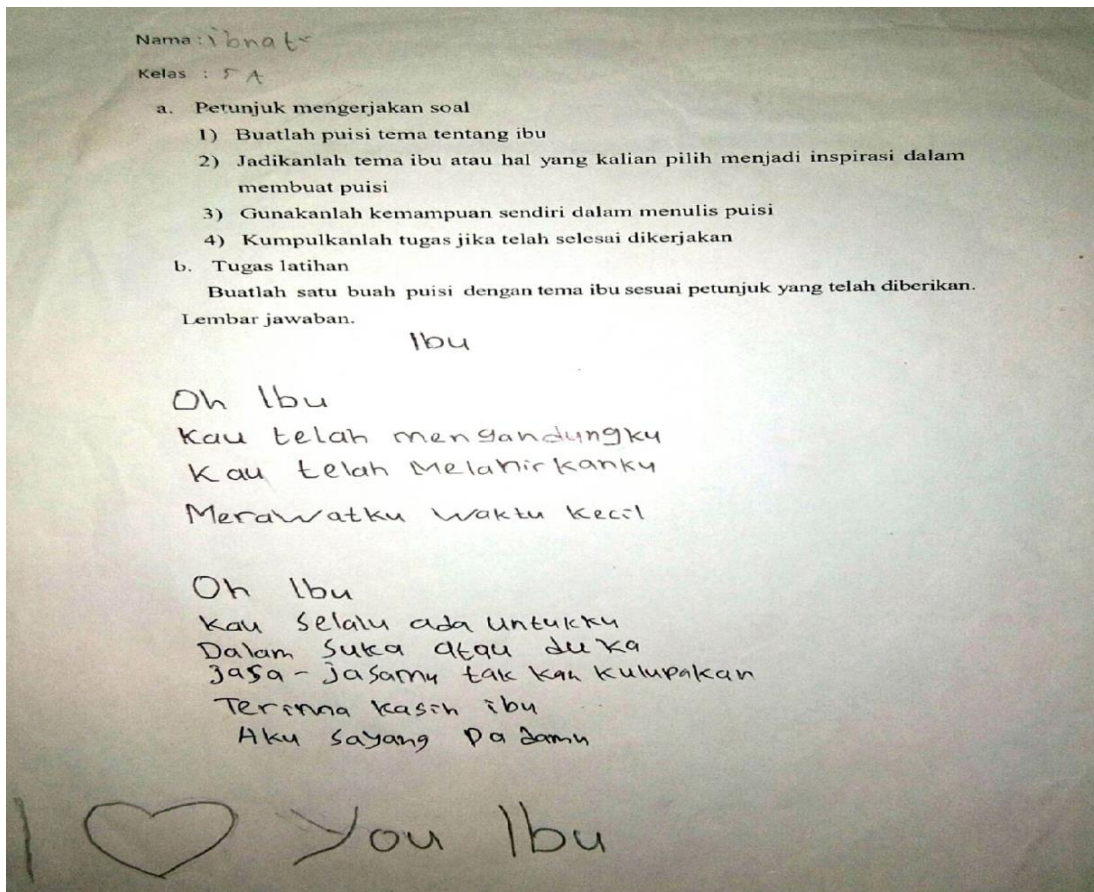 Nama : ibnat
Kelas : 5 A
a. Petunjuk mengerjakan soal
1) Buatlah puisi tema tentang ibu
2) Jadikanlah tema ibu atau hal yang kalian pilih menjadi inspirasi dalam
membuat puisi
3) Gunakanlah kemampuan sendiri dalam menulis puisi
4) Kumpulkanlah tugas jika telah selesai dikerjakan
b. Tugas latihan
Buatlah satu buah puisi dengan tema ibu sesuai petunjuk yang telah diberikan.
Lembar jawaban.
Ibu
Oh Ibu
Kau telah mengandungku
Kau telah Melahirkanku
Merawatku waktu kecil
Oh Ibu
Kau Selalu ada untukku
Dalam Suka atau duka
Jasa - Jasamu tak kan kulupakan
Terimna kasih ibu
Aku sayang Padamu
I ♡ You Ibu